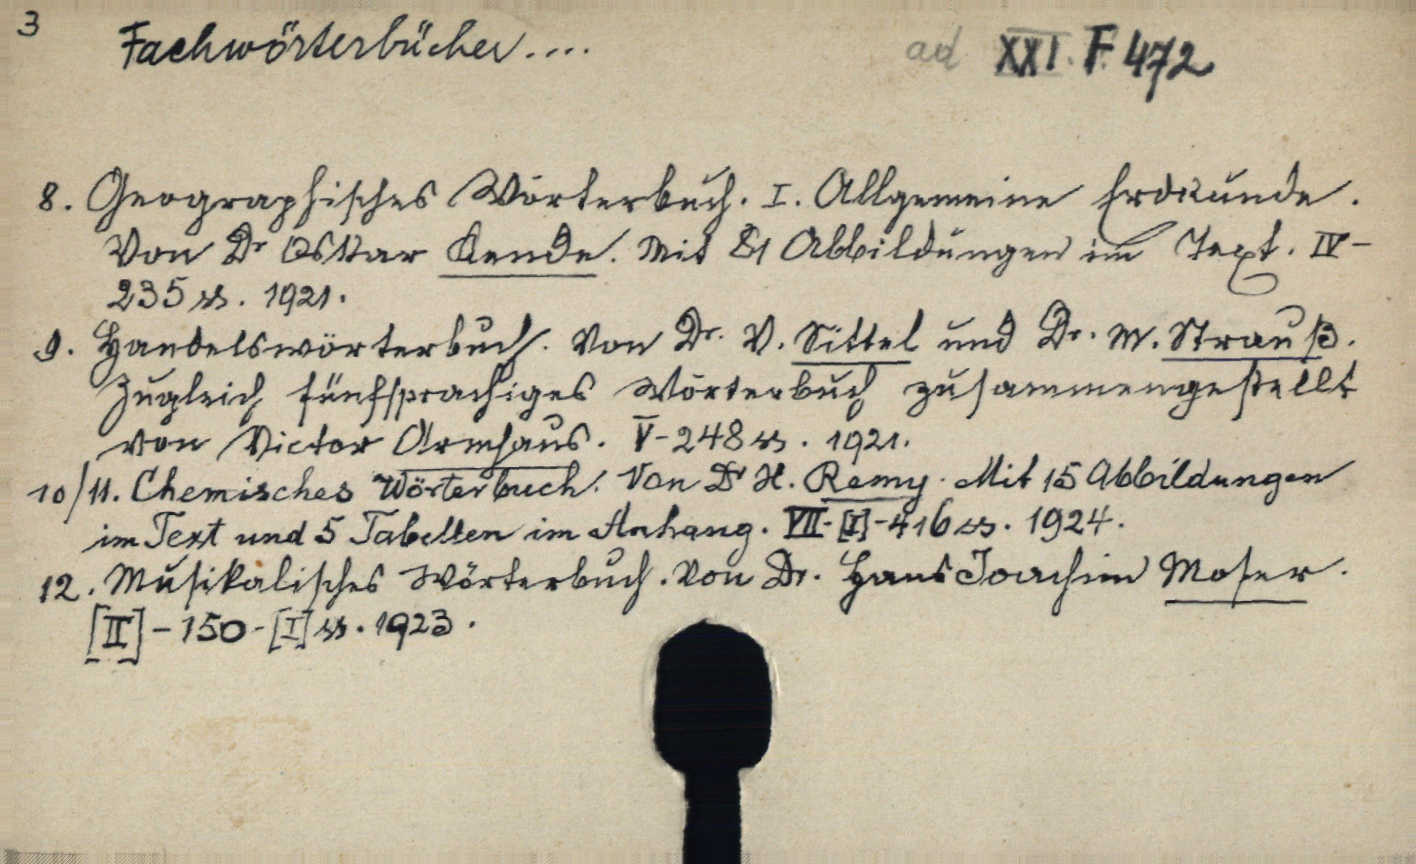 3
Fachwörterbücher....
ad XXI. F. 472
8. Geographisches Wörterbuch. I. Allgemeine Erdkunde.
Von Dr Oskar Kende. Mit 81 Abbildungen im Text. IV-
235 ss. 1921.
9. Handelswörterbuch. Von Dr. V. Sittel und Dr. M. Strauß.
Zugleich fünfsprachiges Wörterbuch zusammengestellt
von Victor Armhaus. V-248 ss. 1921.
10/11. Chemisches Wörterbuch. Von Dr H. Remy. Mit 15 Abbildungen
im Text und 5 Tabellen im Anhang. VII-[I]-416 ss. 1924.
12. Musikalisches Wörterbuch. Von Dr. Hans Joachim Moser.
[II]-150-[I] ss. 1923.